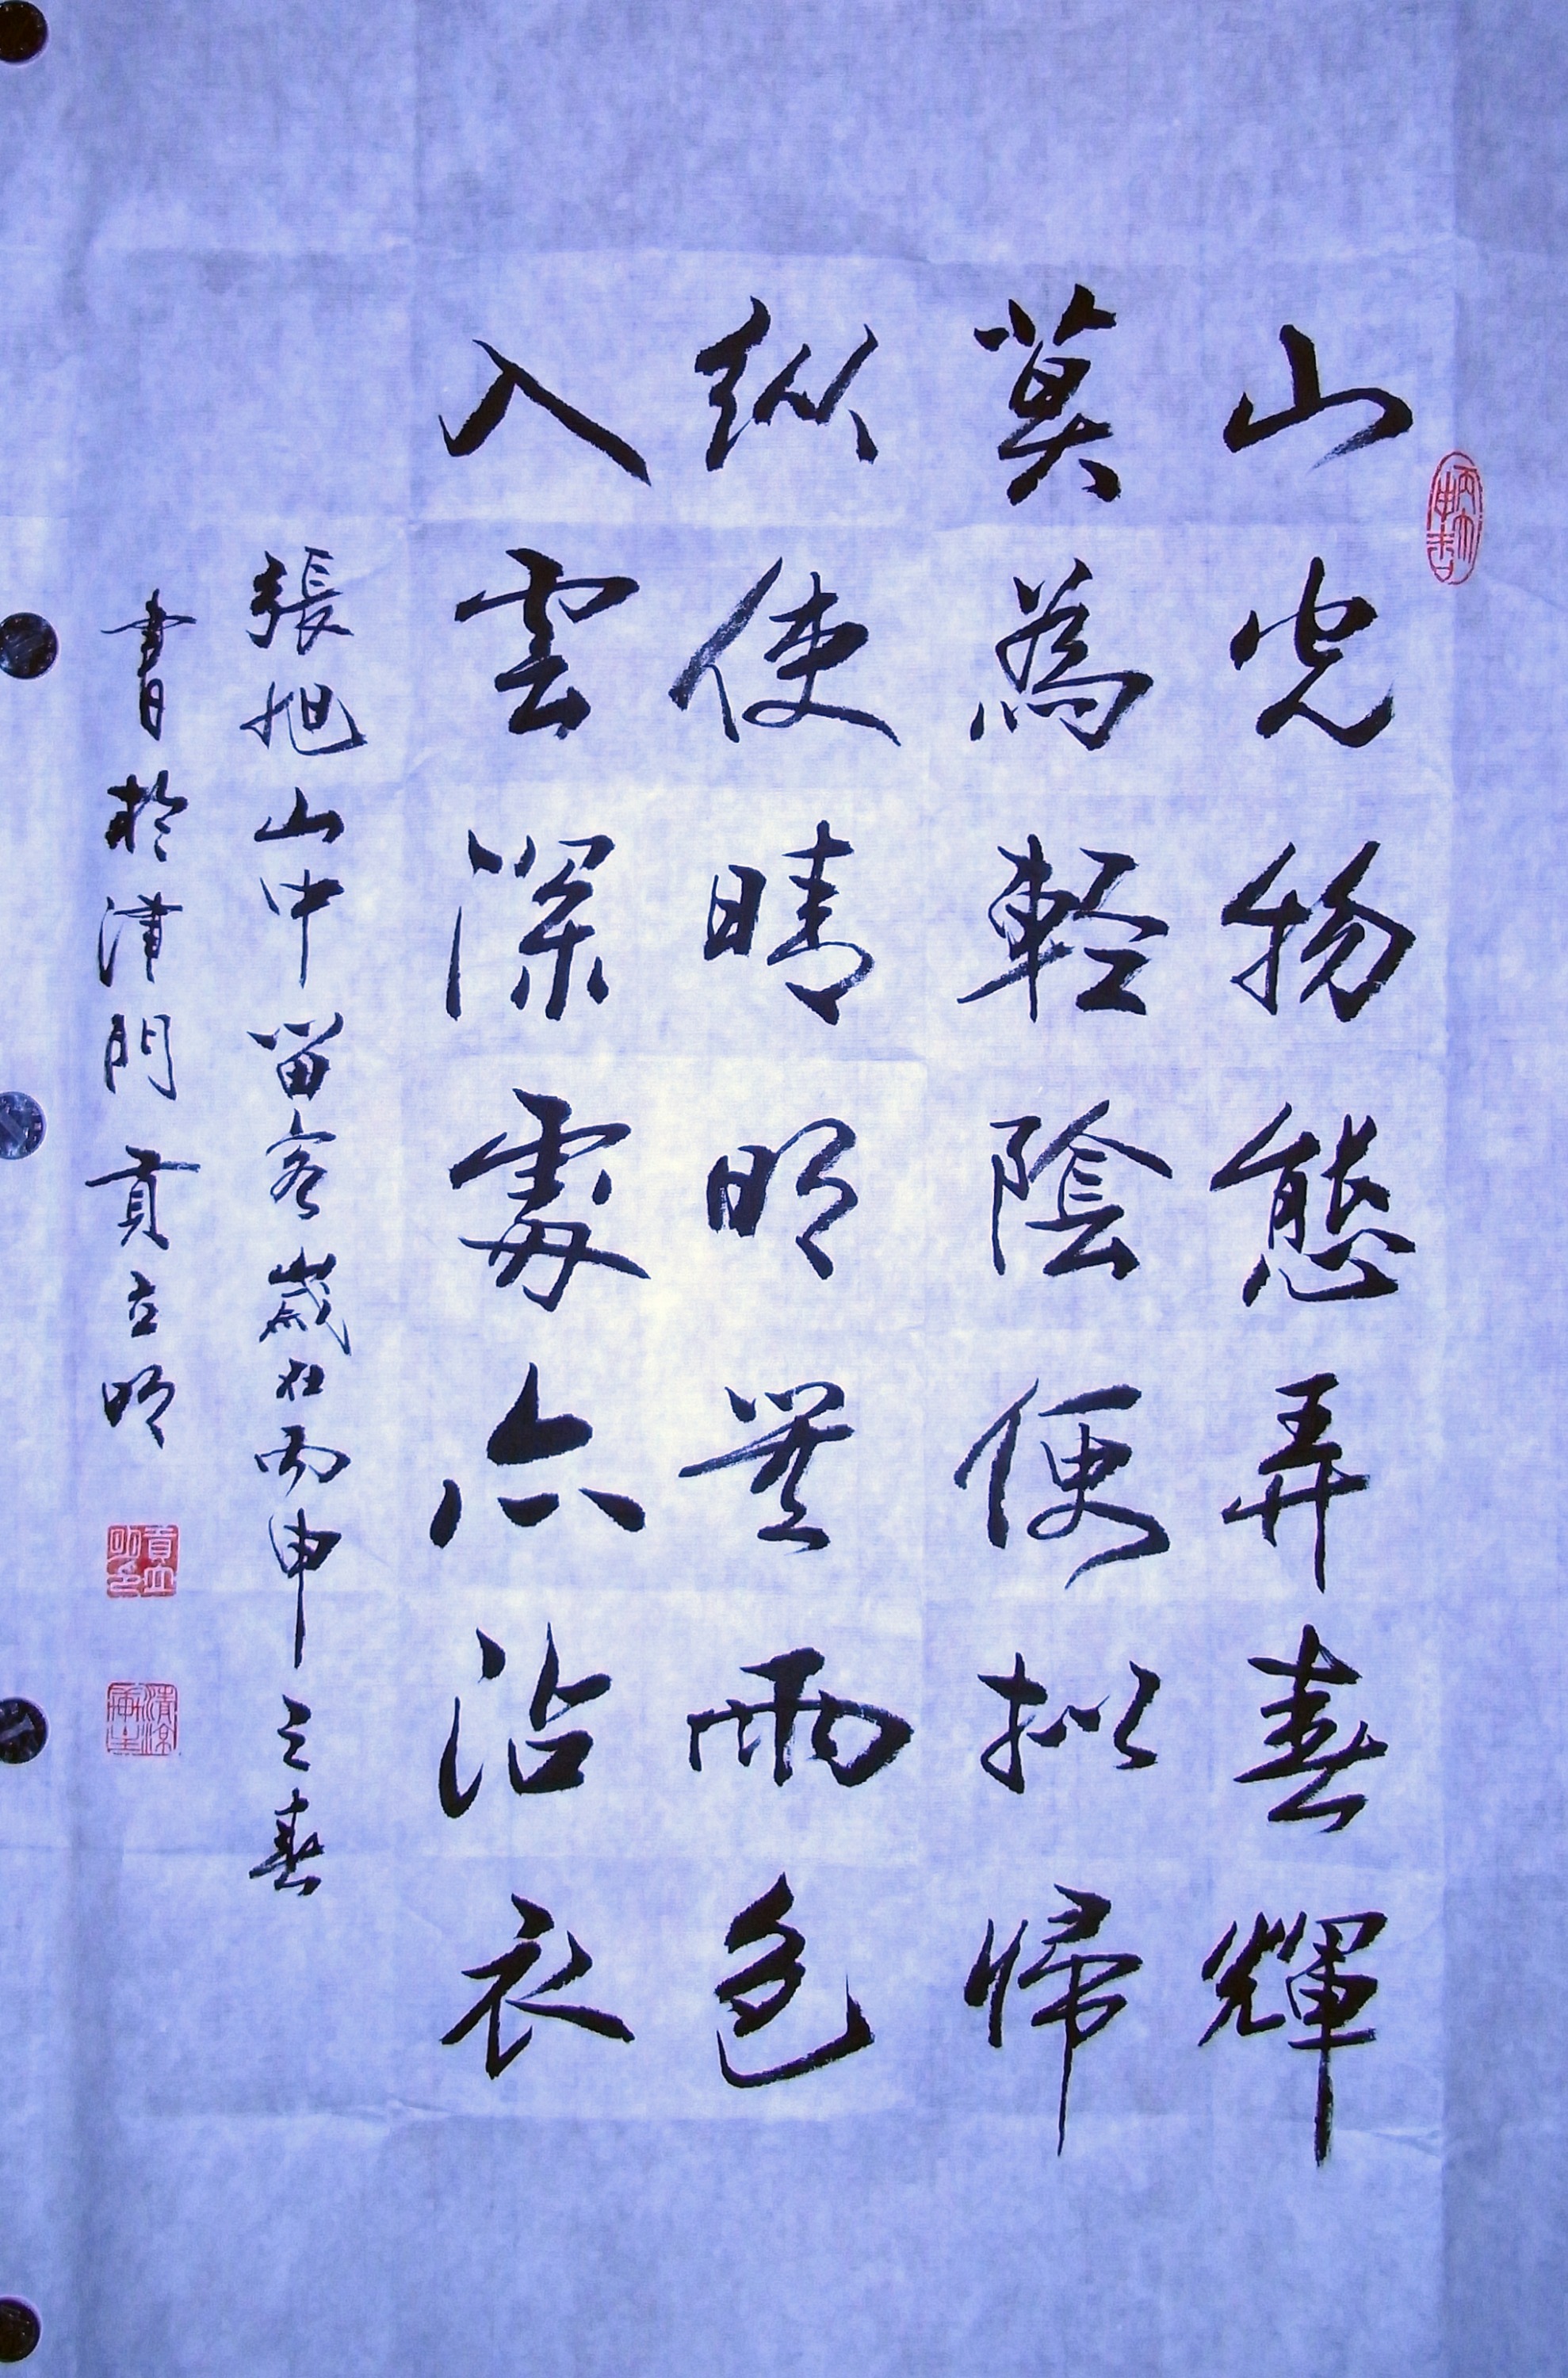 山光物態弄春輝
莫為輕陰便擬歸
縱使晴明無雨色
入雲深處亦沾衣
張旭山中留客歲在丙申之春
書於津門貢立明